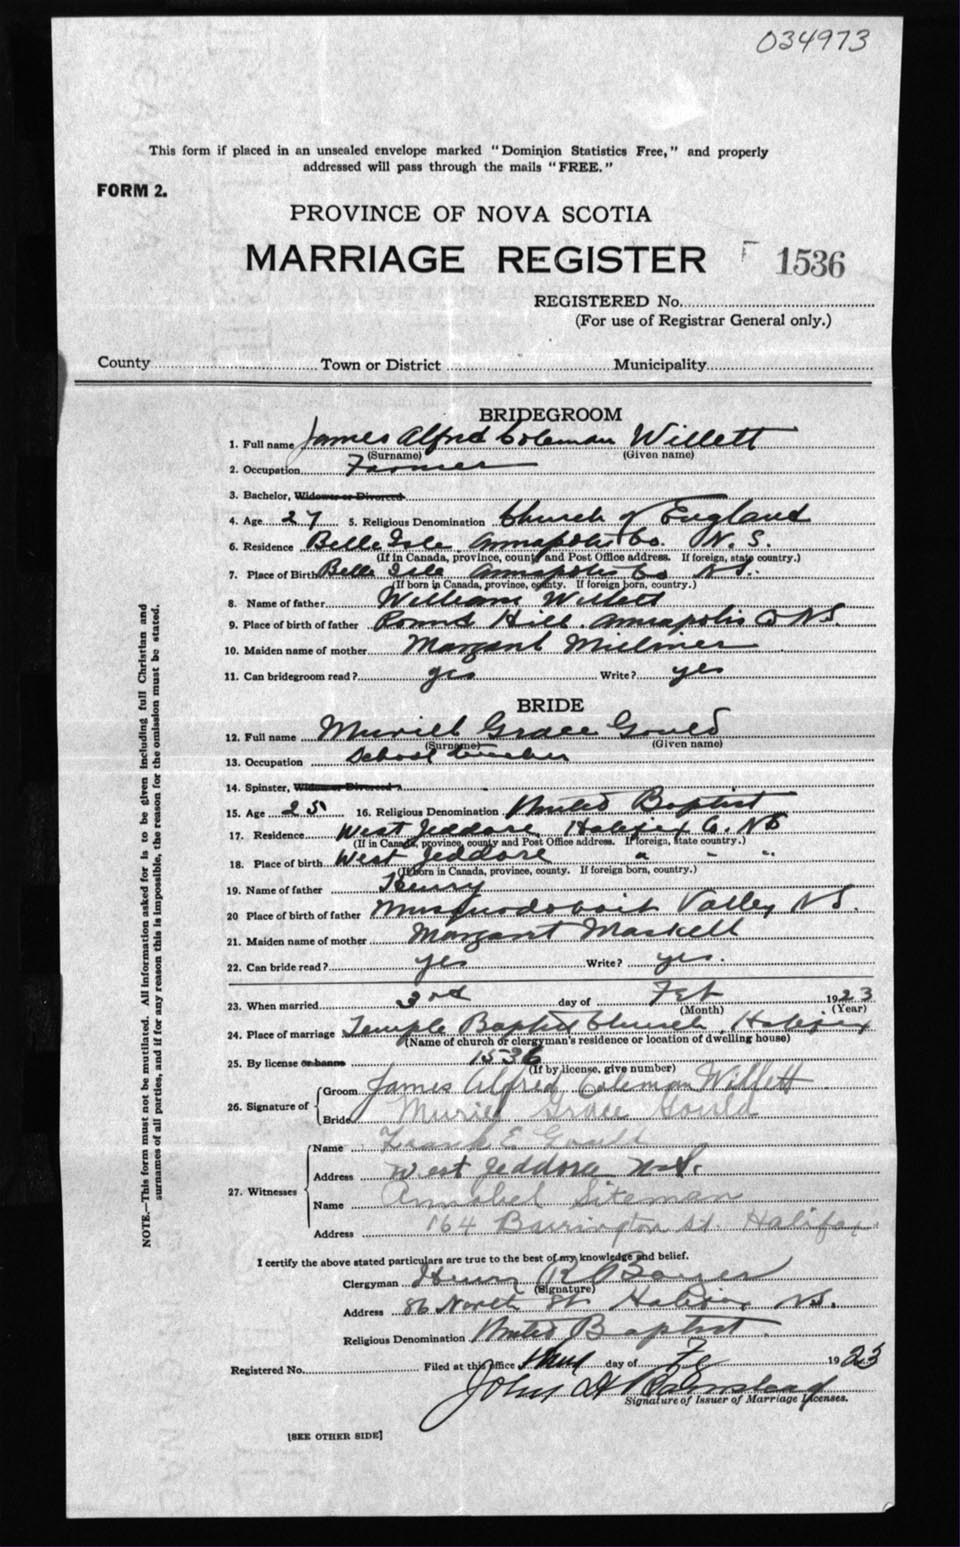 034973
This form if placed in an unsealed envelope marked "Dominion Statistics Free," and properly
addressed will pass through the mails "FREE."
FORM 2.
PROVINCE OF NOVA SCOTIA
MARRIAGE REGISTER F 1536
REGISTERED No.
(For use of Registrar General only.)
County Town or District Municipality
BRIDEGROOM
1. Full name James Alfred Coleman Willett
(Surname) (Given name)
2. Occupation Farmer
3. Bachelor, Widower or Divorced
4. Age 27 5. Religious Denomination Church of England
6. Residence Belle Isle Annapolis Co. N. S.
(If in Canada, province, county and Post Office address. If foreign, state country.)
7. Place of Birth Belle Isle Annapolis Co N.S.
(If born in Canada, province, county. If foreign born, country.)
8. Name of father William Willett
9. Place of birth of father Round Hill. Annapolis Co N.S.
10. Maiden name of mother Margant
11. Can bridegroom read? yes Write? yes
BRIDE
12. Full name Muriell Grace Gould
(Surname) (Given name)
13. Occupation School teacher
14. Spinster, Widow or Divorced
15. Age 25 16. Religious Denomination United Baptist
17. Residence West Jeddore Halifax Co. NS
(If in Canada, province, county and Post Office address. If foreign, state country.)
18. Place of birth West Jeddore " " "
(If born in Canada, province, county. If foreign born, country.)
19. Name of father Henry
20 Place of birth of father Musquodoboit Valley N.S.
21. Maiden name of mother Margant Maskell
22. Can bride read? yes Write? yes.
23. When married 3rd day of Feb 1923
(Month) (Year)
24. Place of marriage Temple Baptist Church, Halifax
(Name of church or clergyman's residence or location of dwelling house)
25. By license or banns 1536
(If by license, give number)
26. Signature of Groom James Alfred Coleman Willett
Bride Muriel Grace Gould
27. Witnesses Name Frank E Gould
Address West Jeddore N.S.
Name Annabel Siteman
Address 164 Barrington St. Halifax
I certify the above stated particulars are true to the best of my knowledge and belief.
Clergyman Henry R
(Signature)
Address 86 North St Halifax N.S.
Religious Denomination United Baptist.
Registered No. Filed at this office third day of Fe 1923
John H
Signature of Issuer of Marriage Licenses.
[SEE OTHER SIDE]
NOTE.—This form must not be mutilated. All information asked for is to be given including full Christian and
surnames of all parties, and if for any reason this is impossible, the reason for the omission must be stated.